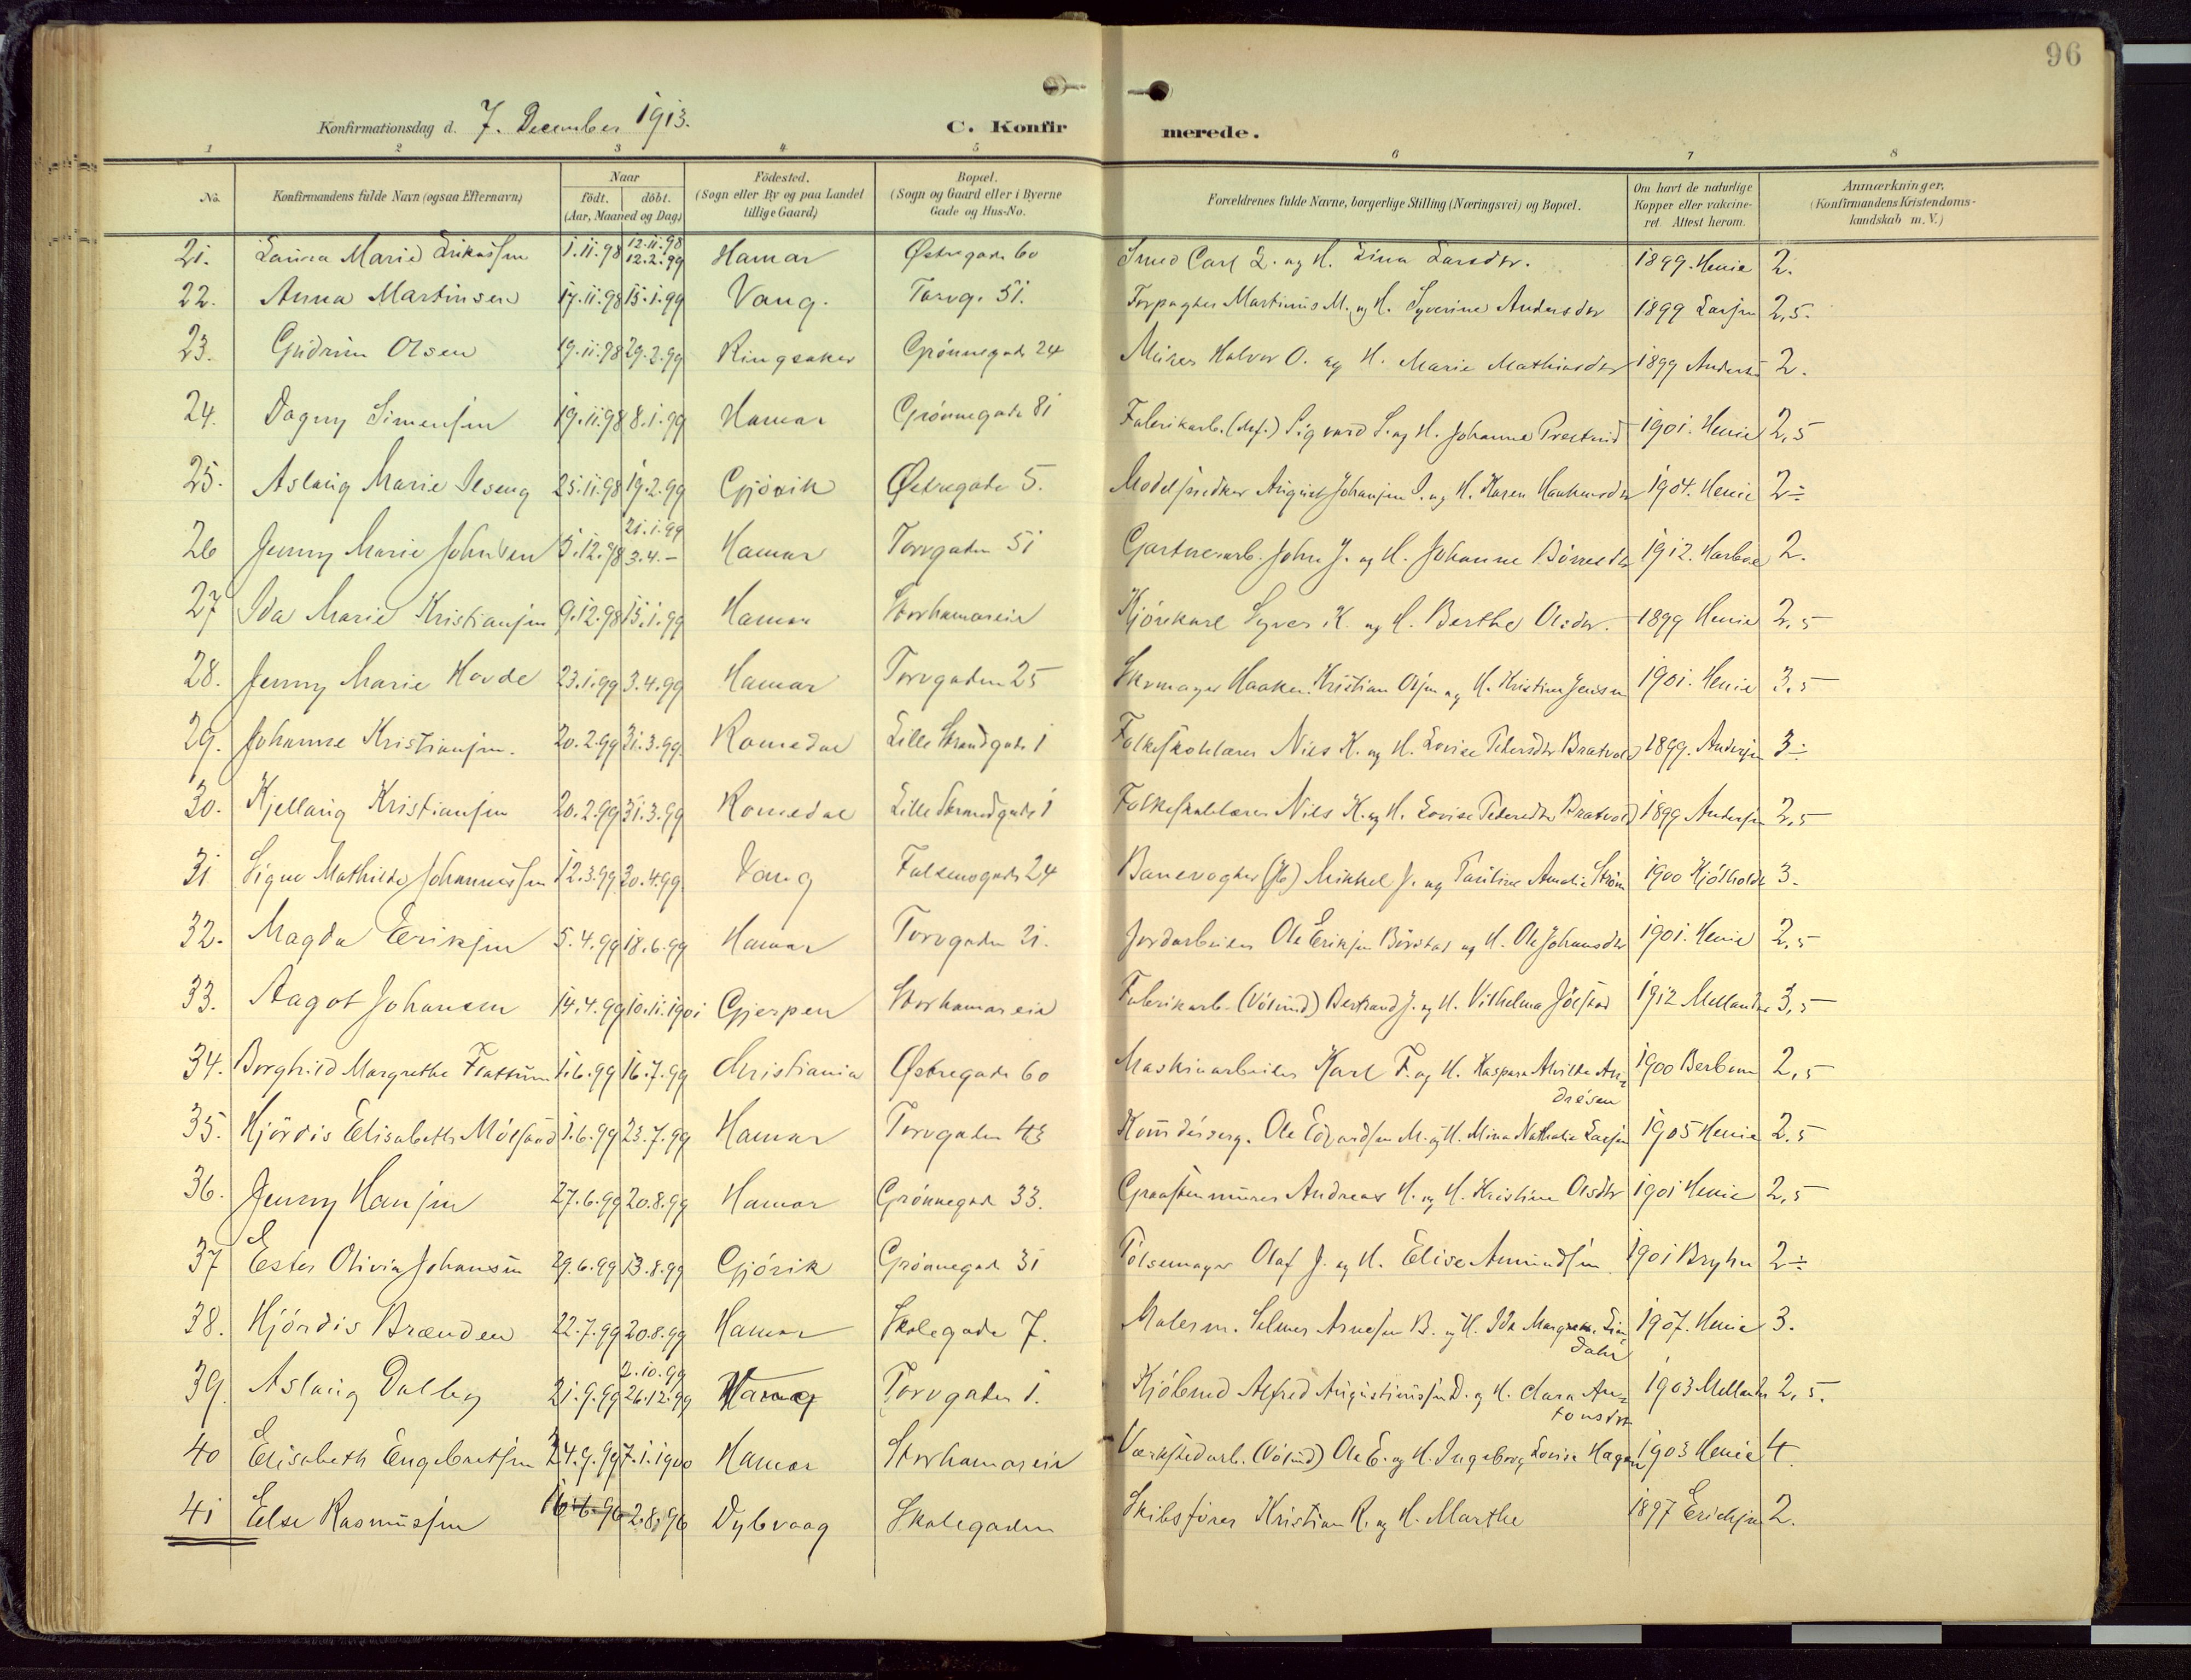 96
Konfirmationsdag d. 7. December 1913.
C. Konfirmerede.
1 2 3 4 5 6 7 8
No. Konfirmandens fulde Navn (ogsaa Efternavn) Naar födt. döbt. (Aar, Maaned og Dag.) Födested. (Sogn eller By og paa Landet tillige Gaard) Bopæl. (Sogn og Gaard eller i Byerne Gade og Hus-No. Forældrenes fulde Navne, borgerlige Stilling (Næringsvei) og Bopæl. Om havt de naturlige Kopper eller vakcineret. Attest herom. Anmærkninger. (Konfirmandens Kristendomskundskab m. V.)
21. Marie 1.11.98 12.11.98 12.2.99 Hamar Østregade 60 Smed Carl og H. Lina Larsdtr. 1899. Henie 2.
22. Anna Martinsen 17.11.98 15.1.99 Vang. Torvg. 51. Martinus M. og H. Syverine Andersdtr 1899 Larsen 2,5.
23. Gudrun Olsen 19.11.98 29.2.99 Ringsaker Grönnegade 24 Murer Halvor O. og H. Marie Mathiasdtr 1899 Andersen 2.
24. Dagny Simensen 19.11.98 8.1.99 Hamar Grönnegade 81 Fabrikarb. Sigvard S. og H. Johanne 1901. Henie 2,5
25. Aslaug Marie Ilseng 25.11.98 19.2.99 Gjövik Østregade 5. Modelsnedker August Johansen I. og H. Karen 1904. Henie 2÷
26 Jenny Marie Johnsen 5.12.98 21.1.99 3.4.– Hamar Torvgaden 51 Gartnerarb. John J. og H. Johanne 1912. Harboe 2.
27 Ida Marie Kristiansen 9.12.98 15.1.99 Hamar Storhamareie Kjörekarl Syver K. og H. Berthe Olsdtr. 1899 Henie 2,5
28. Jenny Marie Hovde 23.1.99 3.4.99 Hamar Torvgaden 25 Skomager Haaken Kristian Olsen og H. Kristine Jensen 1901. Henie 3,5
29. Johanne Kristiansen. 20.2.99 31.3.99. Romedal Lille Strandgade 1 Folkeskolelærer Nils K. og H. Lovise Pedersdtr Bratvold 1899. Andersen 3÷
30. Kjellaug Kristiansen 20.2.99 31.3.99 Romedal Lille Strandgade 1 Folkeskolelærer Nils K. og H. Lovise Pedersdtr Bratvold 1899 Andersen 2,5
31 Signe Mathilde Johannessen 12.3.99 30.4.99. Vang Falsensgade 24 Banevogter Mikkel J. og Pauline Amalie Ström 1900 3.
32. Magda Eriksen 5.4.99 18.6.99 Hamar Torvgaden 21. Jordarbeider Ole Eriksen og H. Johansdtr 1901. Henie 2,5
33. Aagot Johansen 14.4.99 10.11.1901 Gjerpen Storhamareie Fabrikarb. Bertrand J. og H. Vilhelma 1912 Mellander 3,5
34. Borghild Margrethe Flattum 1.6.99 16.7.99 Christiania Østregade 60 Maskinarbeider Karl F. og H. Kaspara Alvilde Andrésen 1900 2,5
35. Hjördis Elisabeth 1.6.99 23.7.99 Hamar Torvgaden 43 Ole Edvardsen M. og H. Mina Nathalie Larsen 1905 Henie 2.5
36. Jenny Hansen 27.6.99 20.8.99 Hamar Grönnegade 33. Graastenmurer Andreas H. og H. Kristine Olsdtr 1901 Henie 2,5
37 Ester Olivia Johansen 29.6.99 13.8.99 Gjövik Grönnegade 31 Pölsemager Olaf J. og H. Elise Amundsen 1901 Bryhn 2÷
38. Hjördis Brænden 22.7.99 20.8.99 Hamar Skolegade 7. Malerm. Selmer Arnesen B. og H. Ida Margrethe 1907. Henie 3.
39. Aslaug Dalby 21.9.99 2.10.99 26.12.99 Torvgaden 1. Kjöbmd Alfred Augustinussen D. og H. Clara Antonsdtr 1903 Mellander 2,5.
40 Elisabeth Engebretsen 24.9.99 7.1.1900 Hamar Storhamareie Værkstedarb. Ole E. og H. Ingeborg Lovise Hagen 1903 Henie 4.
41 Else Rasmussen 16.6.96 2.8.96 Dybvaag Skolegaden Skibsförer Kristian R. og H. Marthe 1897 Erichsen 2.